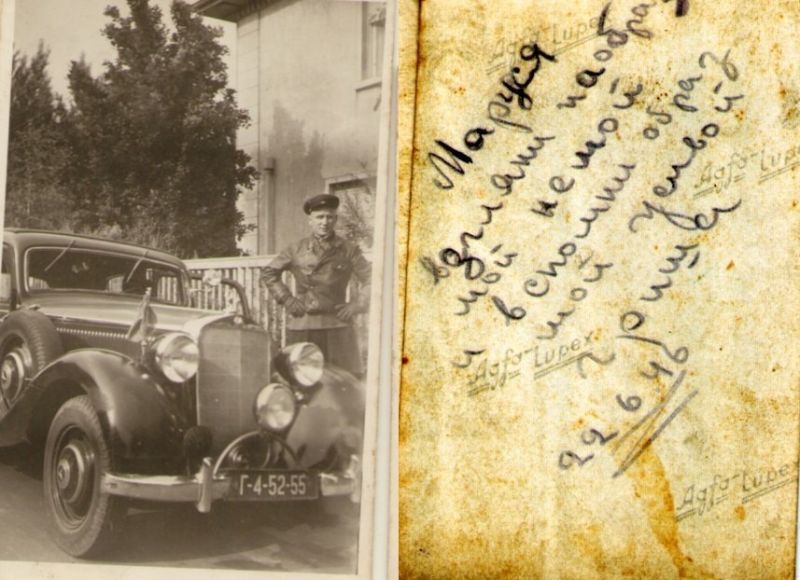 Г-4-52-55
Маруся
взгляни на образ
мой немой
и вспомни образ
мой
Гриша
22 6 46
Agfa-Lupex
Agfa-Lupex
Agfa-Lupex
Agfa-Lupex